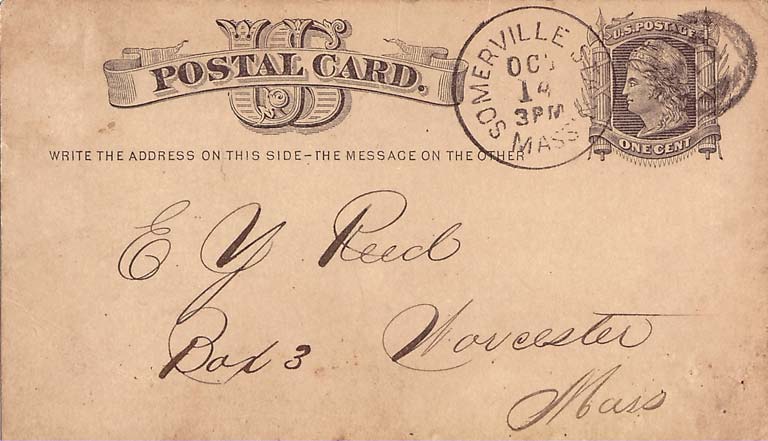 US
POSTAL CARD.
WRITE THE ADDRESS ON THIS SIDE–THE MESSAGE ON THE OTHER
SOMERVILLE
OCT
14
3PM
MASS
U.S. POSTAGE
ONE CENT
E Y Reed
Box 3 Worcester
Mass